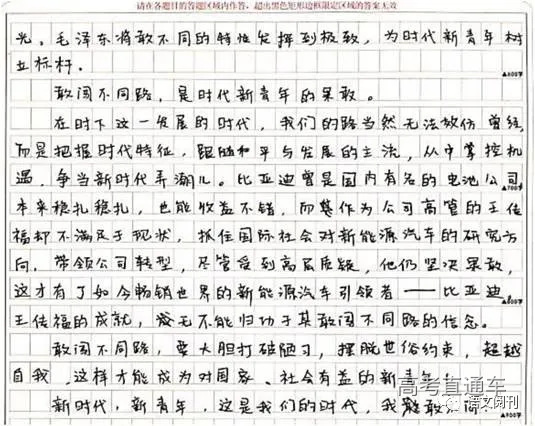 请在各题目的答题区域内作答，超出黑色矩形边框限定区域的答案无效
光。毛泽东将敢不同的特性发挥到极致，为时代新青年树
立标杆。
▲600字
敢闯不同路，是时代新青年的果敢。
在时下这一发展的时代，我们的路当然无法效仿曾经，
而是把握时代特征，跟随和平与发展的主流，从中掌控机
遇，争当新时代弄潮儿。比亚迪曾是国内有名的电池公司
▲700字
本来稳扎稳扎，也能收益不错，而作为公司高管的王传
福却不满足于现状，抓住国际社会对新能源汽车的研究方
向，带领公司转型，尽管受到高层质疑，他仍坚决果敢，
这才有了如今畅销世界的新能源汽车引领者——比亚迪，
▲800字
王传福的成就，无不能归功于其敢闯不同路的信念。
敢闯不同路，要大胆打破陋习，摆脱世俗约束，超越
自我，这样才能成为对国家、社会有益的新青年！
新时代，新青年，这是我们的时代，我敢
高考直通车
语文阅刊